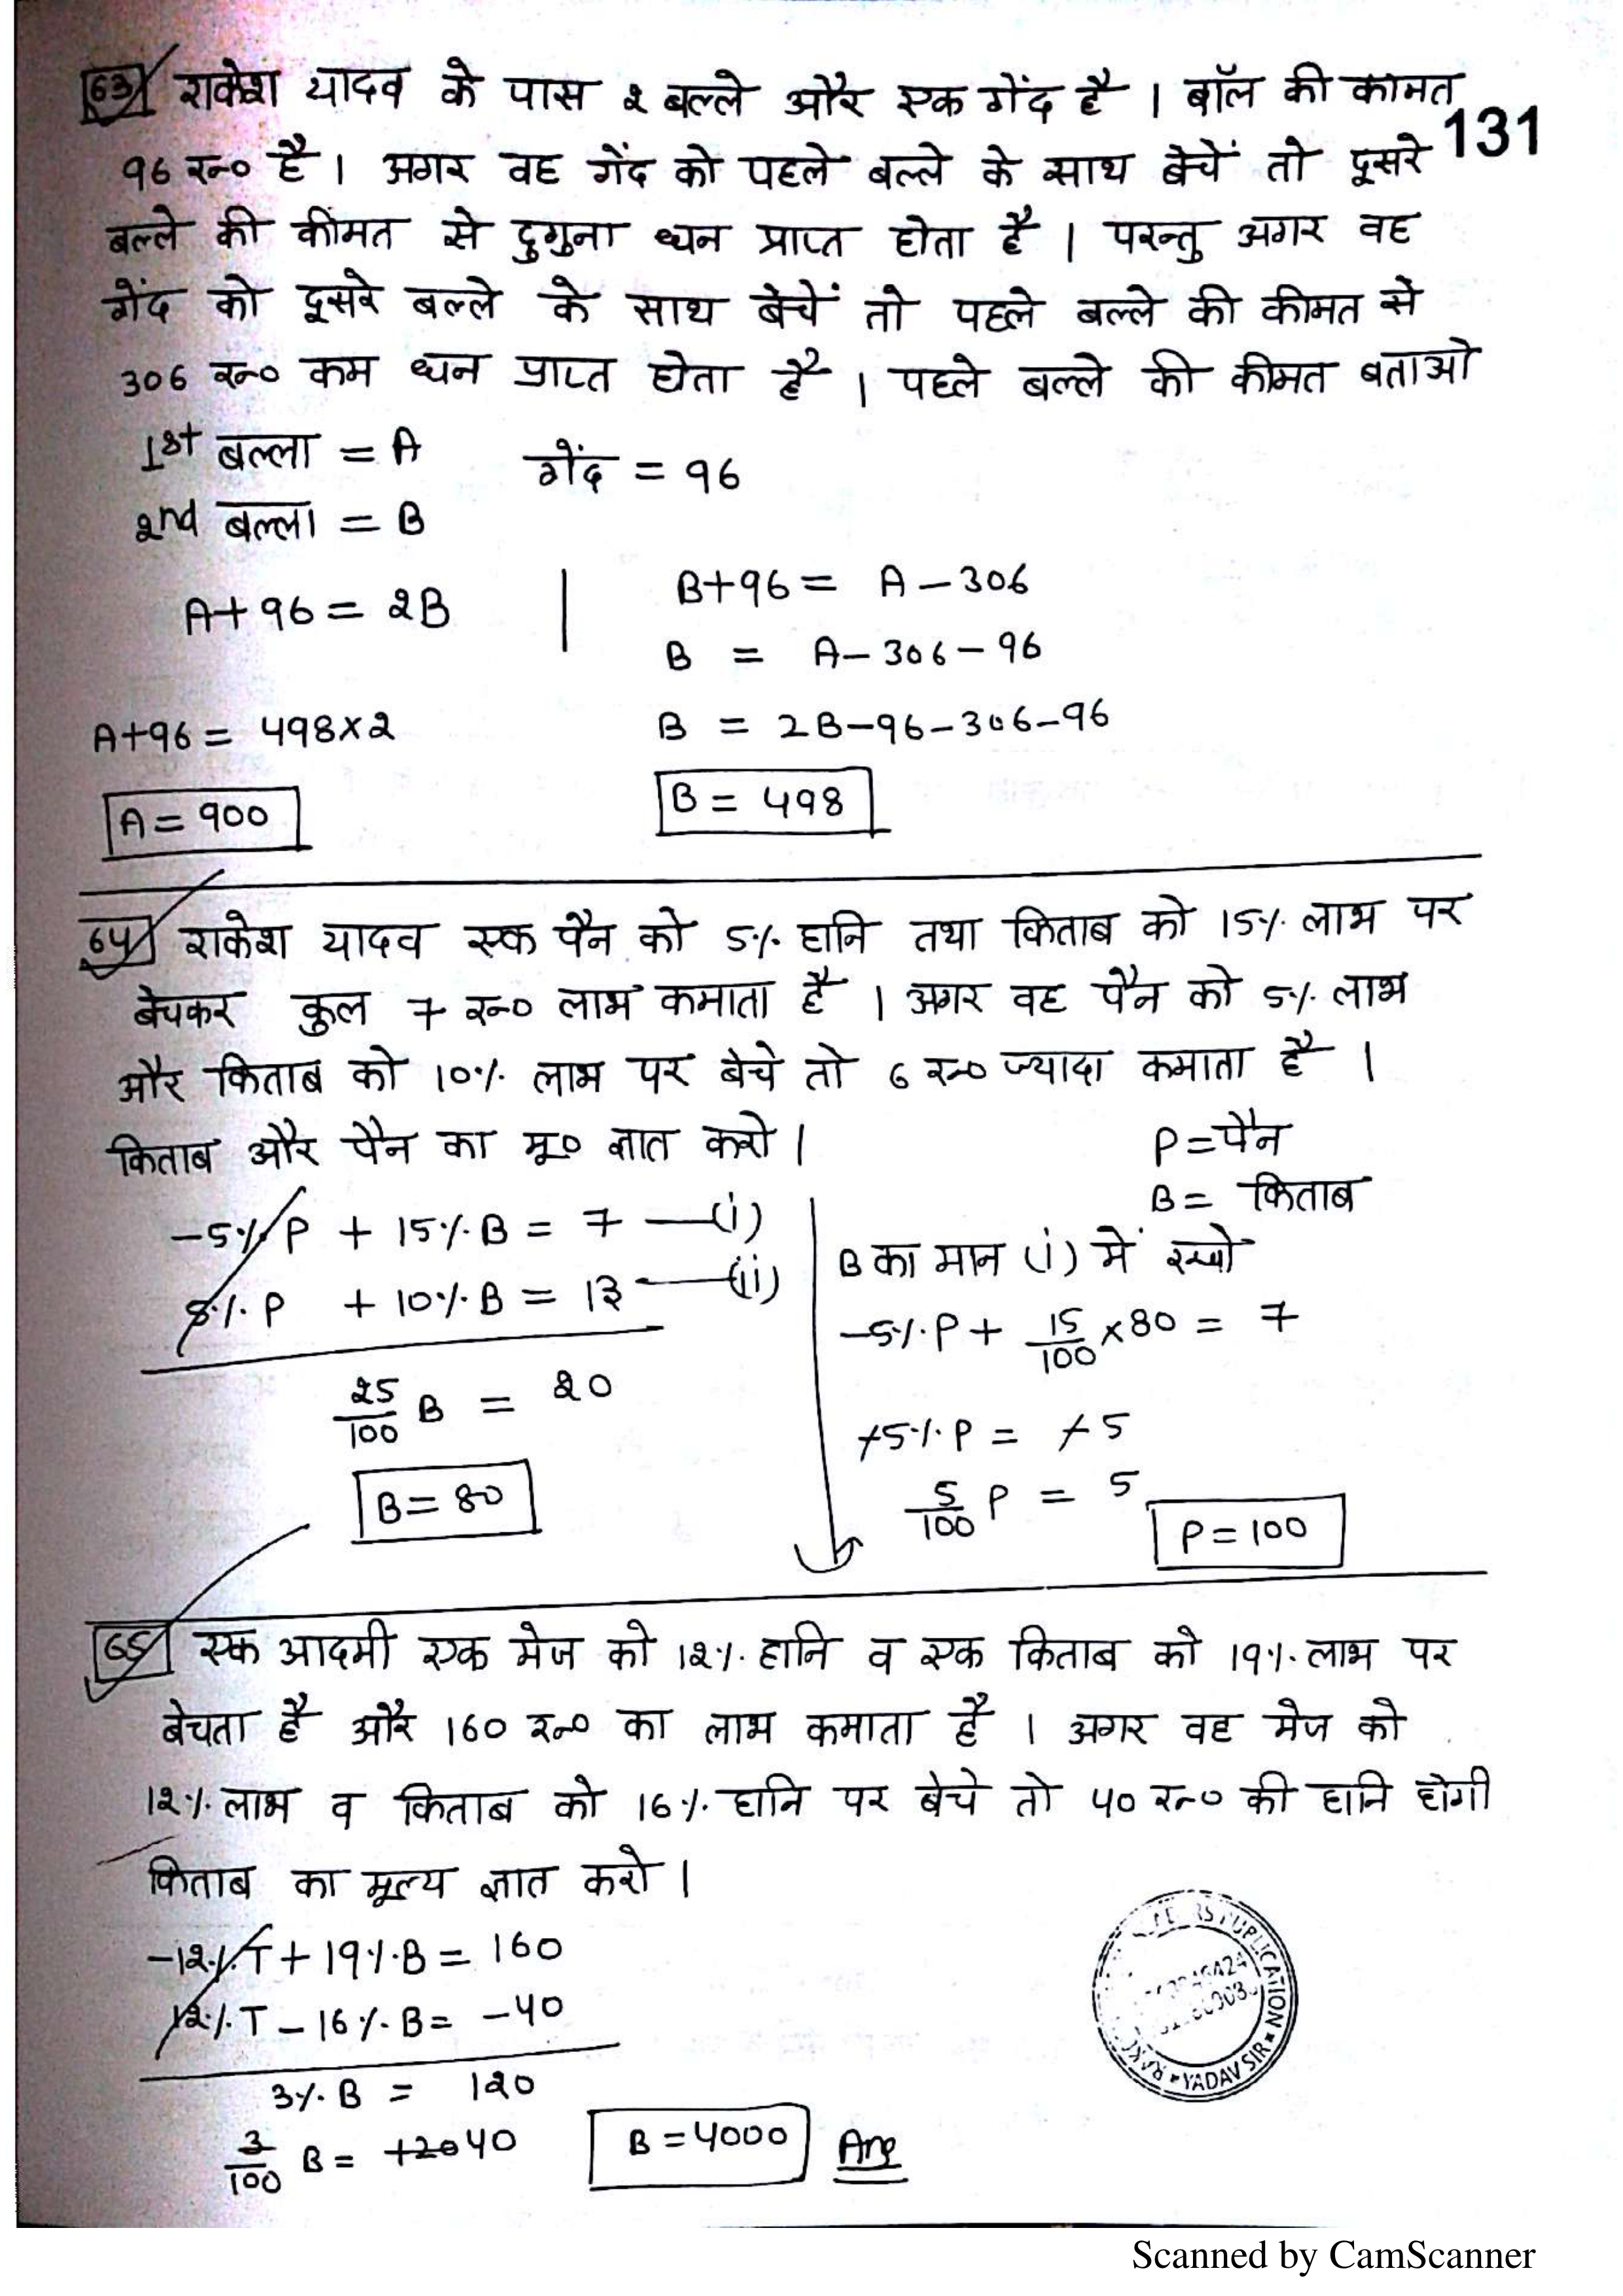 63 राकेश यादव के पास 2 बल्ले और एक गेंद है । बॉल की कामत
131
96 रु० है । अगर वह गेंद को पहले बल्ले के साथ बेचें तो दूसरे
बल्ले की कीमत से दुगुना धन प्राप्त होता है । परन्तु अगर वह
गेंद को दूसरे बल्ले के साथ बेचें तो पहले बल्ले की कीमत से
306 रु० कम धन प्राप्त होता है । पहले बल्ले की कीमत बताओ
1st बल्ला = A गेंद = 96
2nd बल्ला = B
A+96 = 2B | B+96 = A-306
B = A-306-96
A+96 = 498×2 B = 2B-96-306-96
A = 900 B = 498
64 राकेश यादव एक पैन को 5% हानि तथा किताब को 15% लाभ पर
बेचकर कुल 7 रु० लाभ कमाता है । अगर वह पैन को 5% लाभ
और किताब को 10% लाभ पर बेचे तो 6 रु० ज्यादा कमाता है ।
किताब और पैन का मू० ज्ञात करो । P = पैन
B = किताब
-5% P + 15% B = 7 —(i)
B का मान (i) में रखो
5% P + 10% B = 13 —(ii)
-5% P + 15/100 × 80 = 7
25/100 B = 20
+5% P = +5
B = 80
5/100 P = 5 P = 100
65 एक आदमी एक मेज को 12% हानि व एक किताब को 19% लाभ पर
बेचता है और 160 रु० का लाभ कमाता है । अगर वह मेज को
12% लाभ व किताब को 16% हानि पर बेचे तो 40 रु० की हानि होगी
किताब का मूल्य ज्ञात करो ।
-12% T + 19% B = 160
12% T - 16% B = -40
3% B = 120
3/100 B = +2040 B = 4000 Ans
PUBLICATION
YADAV SIR
Scanned by CamScanner